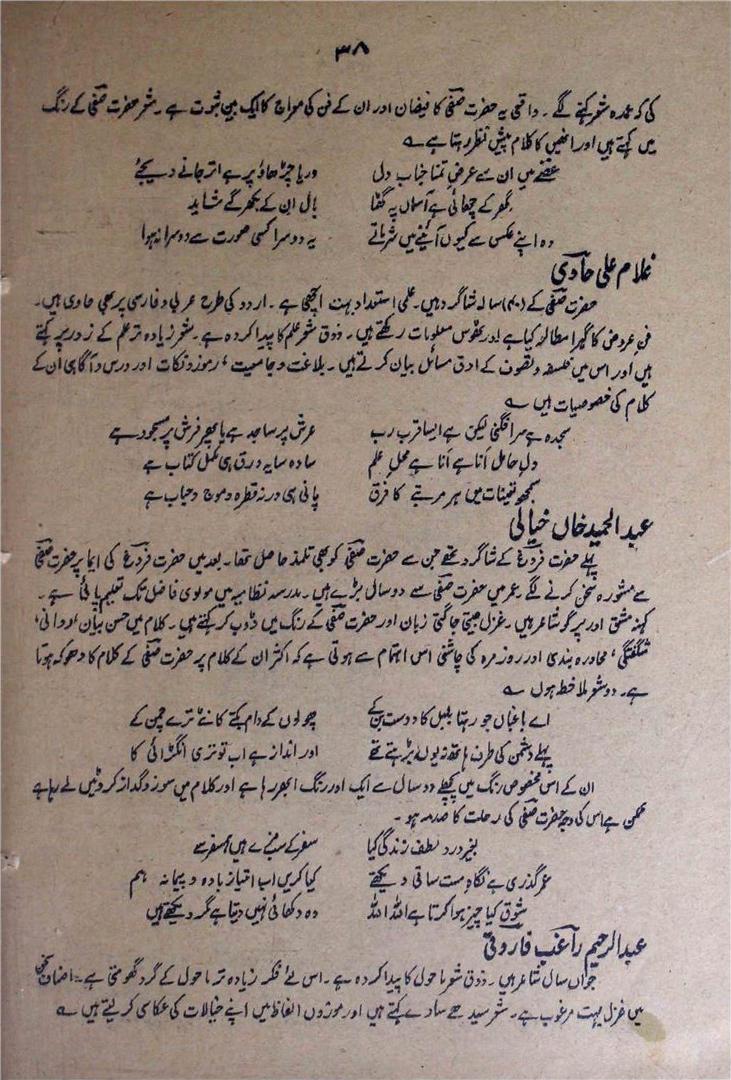 ۳۸
کی کہ عمدہ شعر کہنے لگے۔ واقعی یہ حضرت صفیؔ کا فیضان اور ان کے فن کی معراج کا ایک بین ثبوت ہے۔ شعر حضرت صفیؔ کے رنگ
میں کہتے ہیں اور انھیں کا کلام پیشِ نظر رہتا ہے ؎
غصّے میں ان سے عرضِ تمنا جناب دل دریا چڑھاؤ پر ہے اتر جانے دیجئے
گھر کے چھائی ہے آسماں پہ گھٹا بال ان کے بکھر گے شاید
وہ اپنے عکس سے کیوں آئینے میں شرماتے یہ دوسرا کسی صورت سے دوسرا نہ ہوا
غلام علی حاوی
حضرت صفیؔ کے (۴۰) سالہ شاگرد ہیں۔ علمی استعداد بہت اچھی ہے۔ اردو کی طرح عربی و فارسی پر بھی حاوی ہیں۔
فنِ عروض کا گہرا مطالعہ کیا ہے اور ٹھوس معلومات رکھتے ہیں۔ ذوق شعر علم کا پیدا کردہ ہے۔ شعر زیادہ تر علم کے زور پر کہتے
ہیں اور اس میں فلسفہ و تصوف کے ادق مسائل بیان کرتے ہیں۔ بلاغت و جامعیت، رموز و نکات اور درس و آگاہی ان کے
کلام کی خصوصیات ہیں ؎
سجدہ ہے سرافگنی لیکن ہے ایسا قرب رب عرش پر ساجد ہے یا پھر فرش پر مسجود ہے
دل حامل اَنا ہے اَنا ہے محلِ علم سادہ سا یہ ورق ہی مکمل کتاب ہے
سمجھو تعینات میں ہر مرتبے کا فرق پانی ہی ورنہ قطرہ و موج و حباب ہے
عبدالحمید خاں خیالی
پہلے حضرت فروغؔ کے شاگرد تھے جن سے حضرت صفیؔ کو بھی تلمذ حاصل تھا۔ بعد میں حضرت فروغؔ کی ایما پر حضرت صفیؔ
سے مشورہ سخن کرنے لگے۔ عمر میں حضرت صفیؔ سے دو سال بڑے ہیں۔ مدرسہ نظامیہ میں مولوی فاضل تک تعلیم پائی ہے۔
کہنہ مشق اور پرگو شاعر ہیں۔ غزل جیتی جاگتی زبان اور حضرت صفیؔ کے رنگ میں ڈوب کر کہتے ہیں۔ کلام میں حسن بیان، روانی،
شگفتگی، محاورہ بندی اور روزمرہ کی چاشنی اس اہتمام سے ہوتی ہے کہ اکثر ان کے کلام پر حضرت صفیؔ کے کلام کا دھوکہ ہوتا
ہے۔ دو شعر ملاحظہ ہوں ؎
اے باغباں جو رہتا بلبل کا دوست بن کے پھولوں کے دام بکتے کانٹے ترے چمن کے
پہلے دشمن کی طرف ہاتھ نہ یوں بڑھتے تھے اور انداز ہے اب تو تری انگڑائی کا
ان کے اس مخصوص رنگ میں پچھلے دو سال سے ایک اور رنگ ابھر رہا ہے اور کلام میں سوز و گداز کروٹیں لے رہا ہے
ممکن ہے اس کی وجہ حضرت صفیؔ کی رحلت کا صدمہ ہو۔
بغیر درد لطف زندگی کیا سفر کے سب مزے ہیں ہمسفر سے
عمر گذری ہے نگاہِ مست ساقی دیکھتے کیا کریں اب امتیازِ بادہ و پیمانہ ہم
شوق کیا چیز ہوا کرتا ہے اللہ اللہ وہ دکھائی نہیں دیتا ہے مگر دیکھتے ہیں
عبدالرحیم راغب فاروقی
جواں سال شاعر ہیں۔ ذوق شعر ماحول کا پیدا کردہ ہے۔ اس لئے فکر زیادہ تر ماحول کے گرد گھومتی ہے۔ اصناف سخن
میں غزل بہت مرغوب ہے۔ شعر سیدھے سادے کہتے ہیں اور موزوں الفاظ میں اپنے خیالات کی عکاسی کر لیتے ہیں ؎